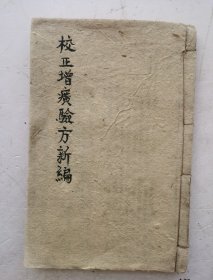 校正增广驗方新編